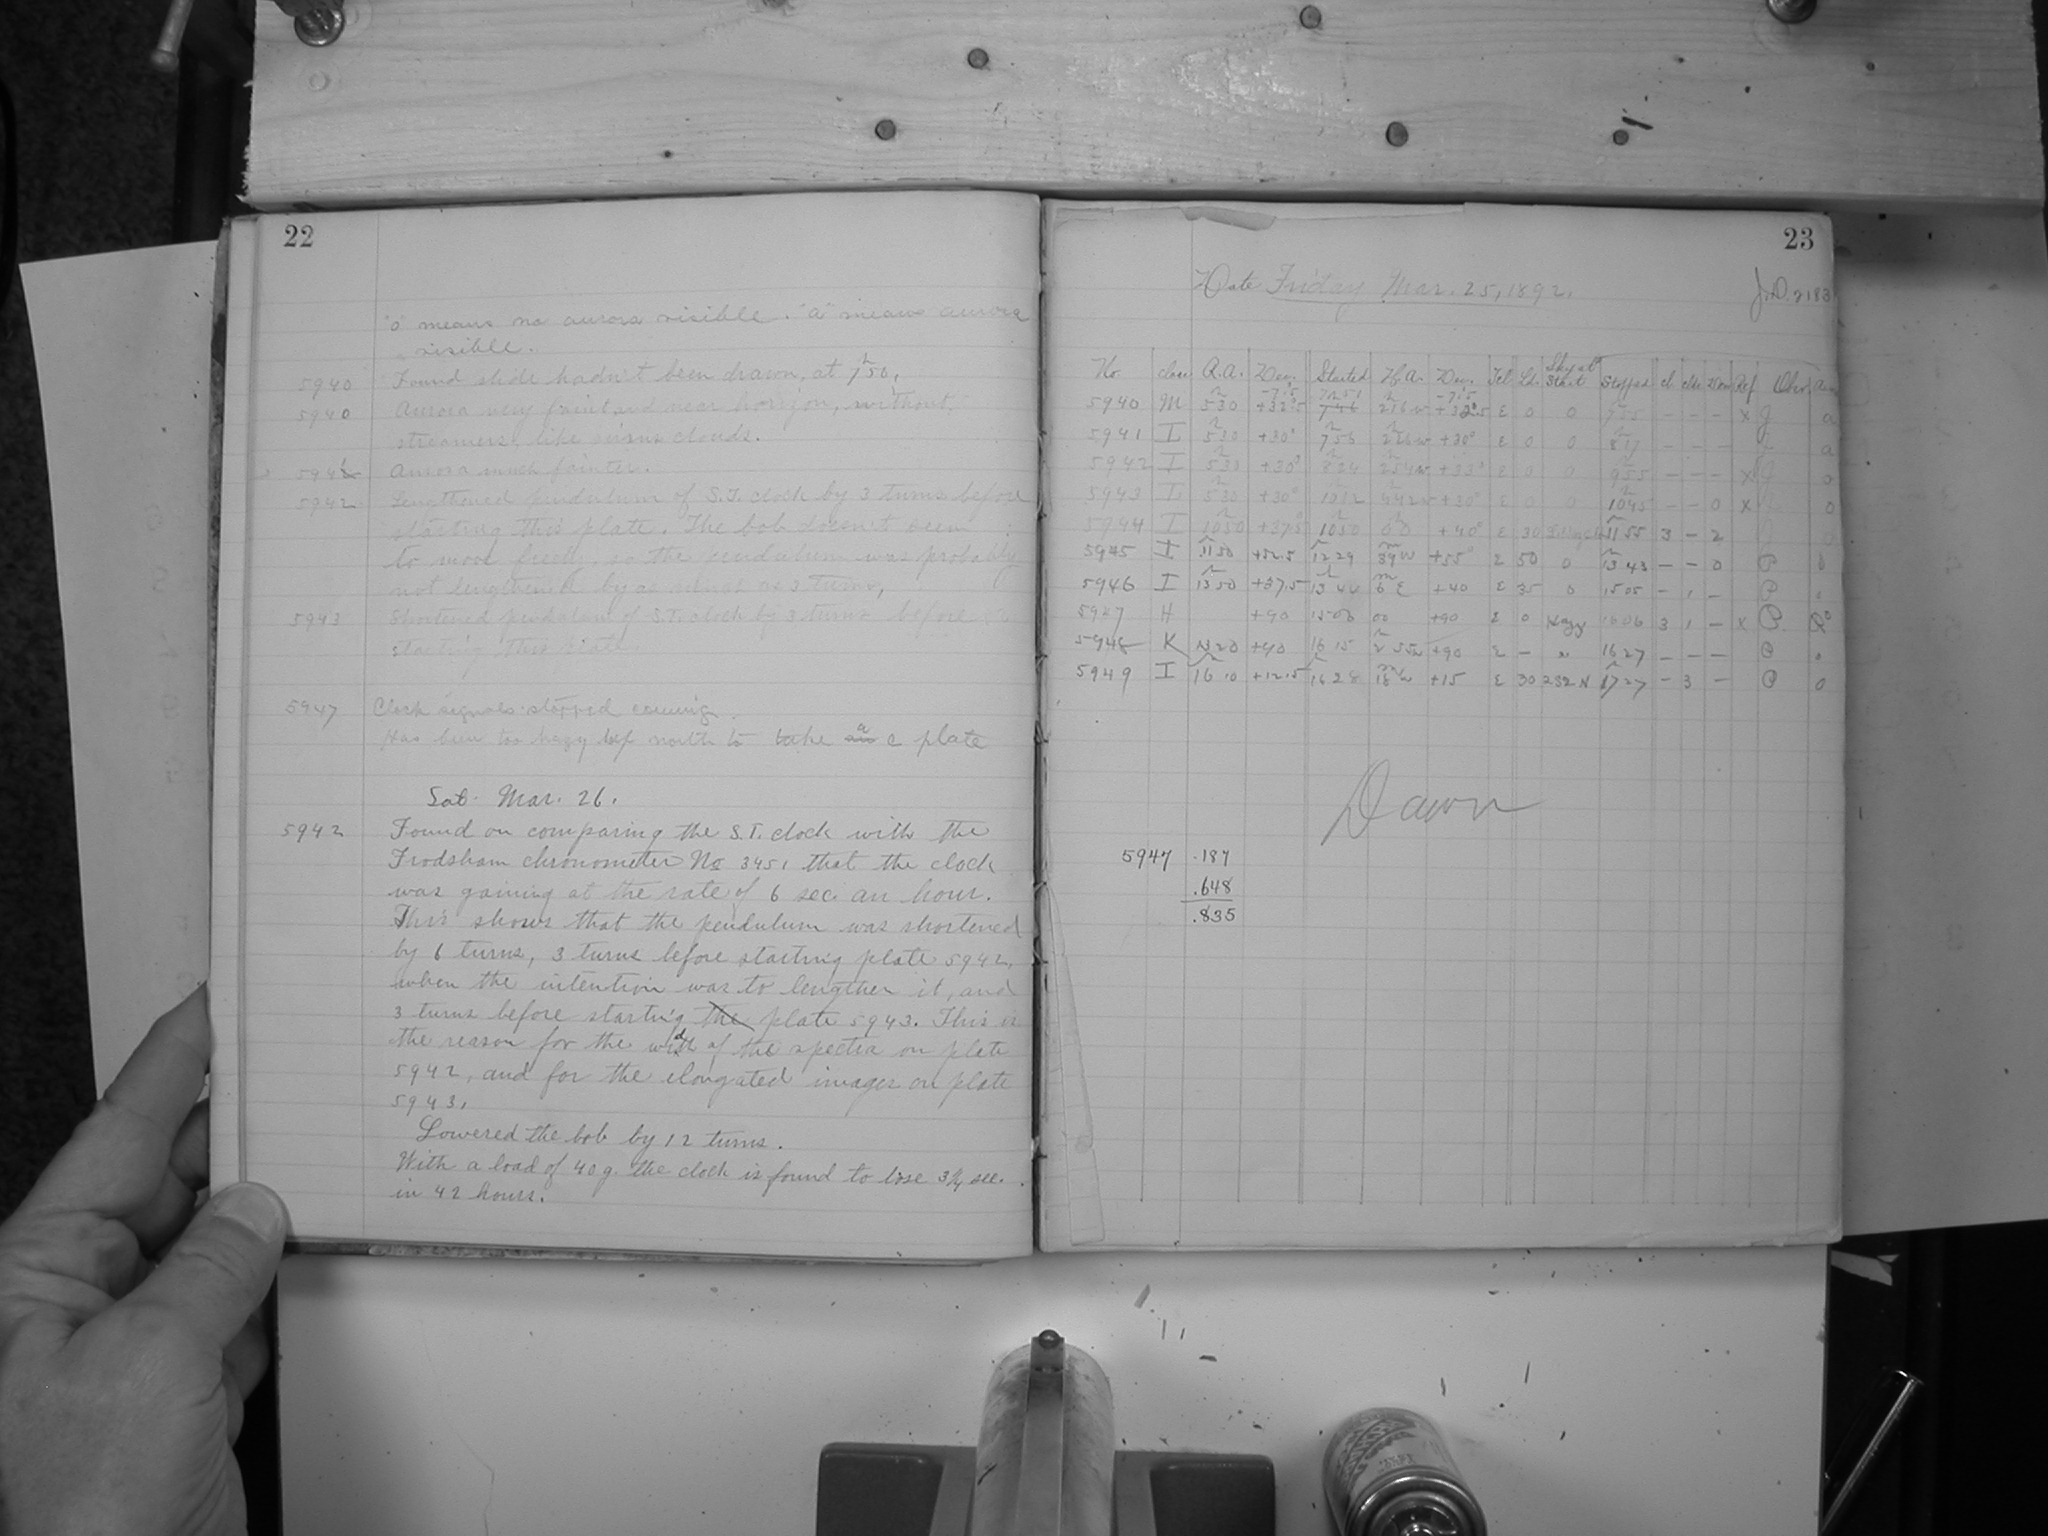 22
"o" means no aurora visible. "a" means aurora
visible.
5940 Found slide hadn't been drawn, at 7h50.
5940 Aurora very faint and near horizon, without
streamers, like cirrus clouds.
5942 Aurora much fainter.
5942 Lengthened pendulum of S.T. clock by 3 turns before
starting this plate. The bob doesn't seem
to move freely, so the pendulum was probably
not lengthened by as much as 3 turns,
5943 Shortened pendulum of S.T. clock by 3 turns before
starting this plate.
5947 Clock signals stopped coming.
Has been too hazy north to take a c plate
Sat. Mar. 26.
5942 Found on comparing the S.T. clock with the
Frodsham chronometer No 3451 that the clock
was gaining at the rate of 6 sec. an hour.
This shows that the pendulum was shortened
by 6 turns, 3 turns before starting plate 5942,
when the intention was to lengthen it, and
3 turns before starting the plate 5943. This is
the reason for the width of the spectra on plate
5942, and for the elongated images on plate
5943.
Lowered the bob by 12 turns.
With a load of 40 g. the clock is found to lose 3/4 sec.
in 42 hours.
23
Date Friday Mar. 25, 1892.
J.D. 2183
No. Class R.A. Dec. Started H.A. Dec. Tel. Ld. Sky at Start Stopped cl. Ref. Obs.
5940 M 530 746 E 0 0 755 - - - x J a
5941 I 530 +30° 756 226w +30° E 0 0 817 - - - a
5942 I 530 +30° 824 254w E 0 0 955 - - - x J 0
5943 I 530 +30° 1012 442w +30° E 0 0 1045 - - 0 x 0
5944 I 1050 +37.5 1050 00 +40° E 30 1155 3 - 2
5945 I 1150 +52.5 1229 39w +55° E 50 0 1343 - - 0 P 0
5946 I 1350 +37.5 1344 6 E +40 E 35 0 1505 - 1 - P
5947 H +90 1506 00 +90 E 0 Hazy 1606 3 1 - x P
5948 K 1320 +90 1615 2 55w +90 E - " 1627 - - - P 0
5949 I 16 10 +12.5 1628 18w +15 E 30 232 N 1727 - 3 - P 0
Dawn
5947 .187
.648
.835